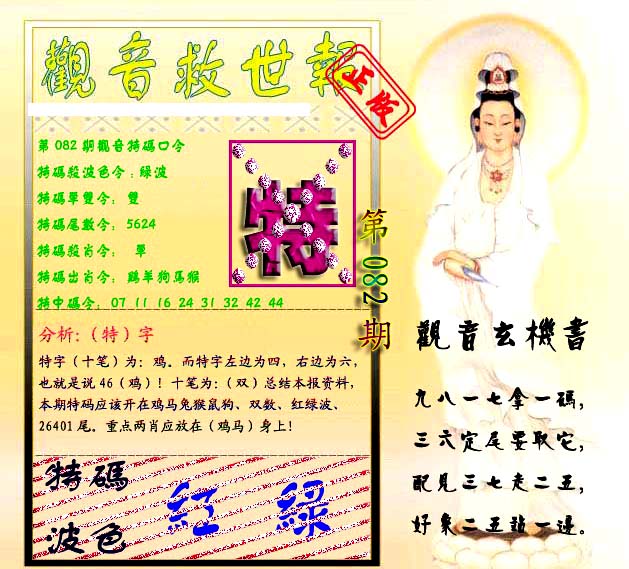 觀音救世報
正版
第 082 期觀音特碼口令
特碼殺波色令：綠波
特碼單雙令： 雙
特碼尾數令： 5624
特碼殺肖令： 單
特碼出肖令： 鷄羊狗馬猴
特中碼令： 07 11 16 24 31 32 42 44
特
第 082 期
分析：（特）字
特字（十笔）为：鸡。而特字左边为四，右边为六，
也就是说 46（鸡）！十笔为：（双）总结本报资料，
本期特码应该开在鸡马兔猴鼠狗、双数、红绿波、
26401 尾。重点两肖应放在（鸡马）身上！
特碼
波色
紅 綠
觀音玄機書
九八一七拿一碼，
三六定尾要取它，
配見三七走二五，
好象二五站一邊。